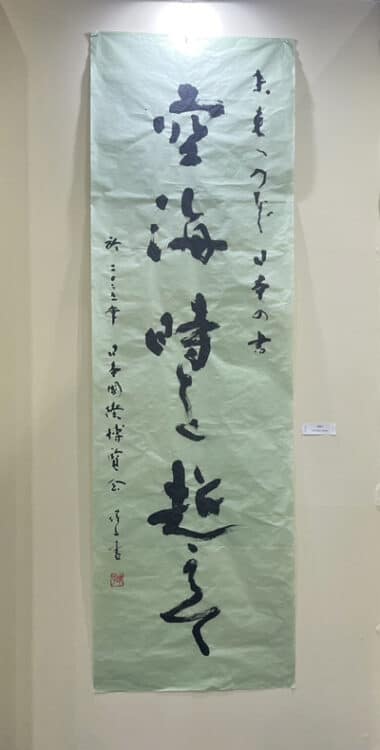 未来へつなぐ日本の
空海時を越えて
於二〇二五年 日本国際博覧会 書